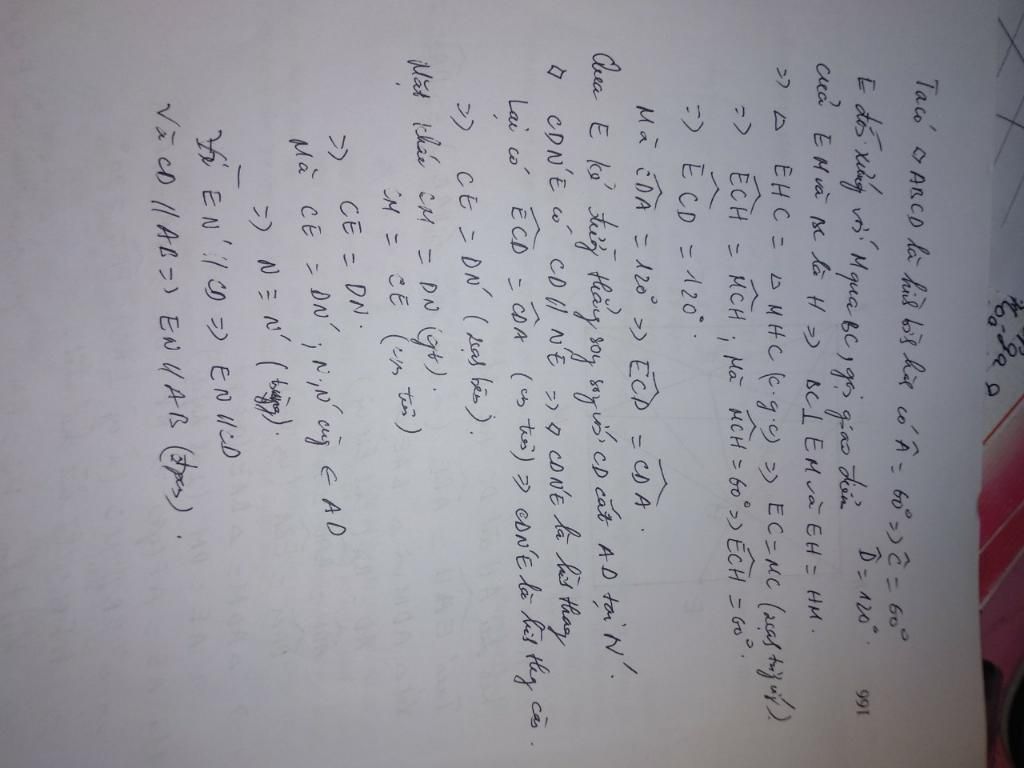 Ta có ◇ ABCD là hình bình hành có Â = 60° => Ĉ = 60°
D̂ = 120°.
E đối xứng với M qua BC, gọi giao điểm
của EM và BC là H => BC ⊥ EM và EH = HM.
=> △ EHC = △ MHC (c.g.c) => EC = MC
=> ECH = MCH ; Mà MCH = 60° => ECH = 60°.
=> ECD = 120°.
Mà CDA = 120° => ECD = CDA.
Qua E kẻ đường thẳng song song với CD cắt AD tại N'.
◇ CDN'E có CD // N'E => ◇ CDN'E là hình thang
Lại có ECD = CDA (cm trên) => CDN'E là hình thang cân.
=> CE = DN'
Mặt khác CM = DN (gt).
CM = CE (cm trên)
=> CE = DN.
Mà CE = DN' ; N, N' cùng ∈ AD
=> N ≡ N'
EN' // CD => EN // CD
Và CD // AB => EN // AB (đpcm).
166